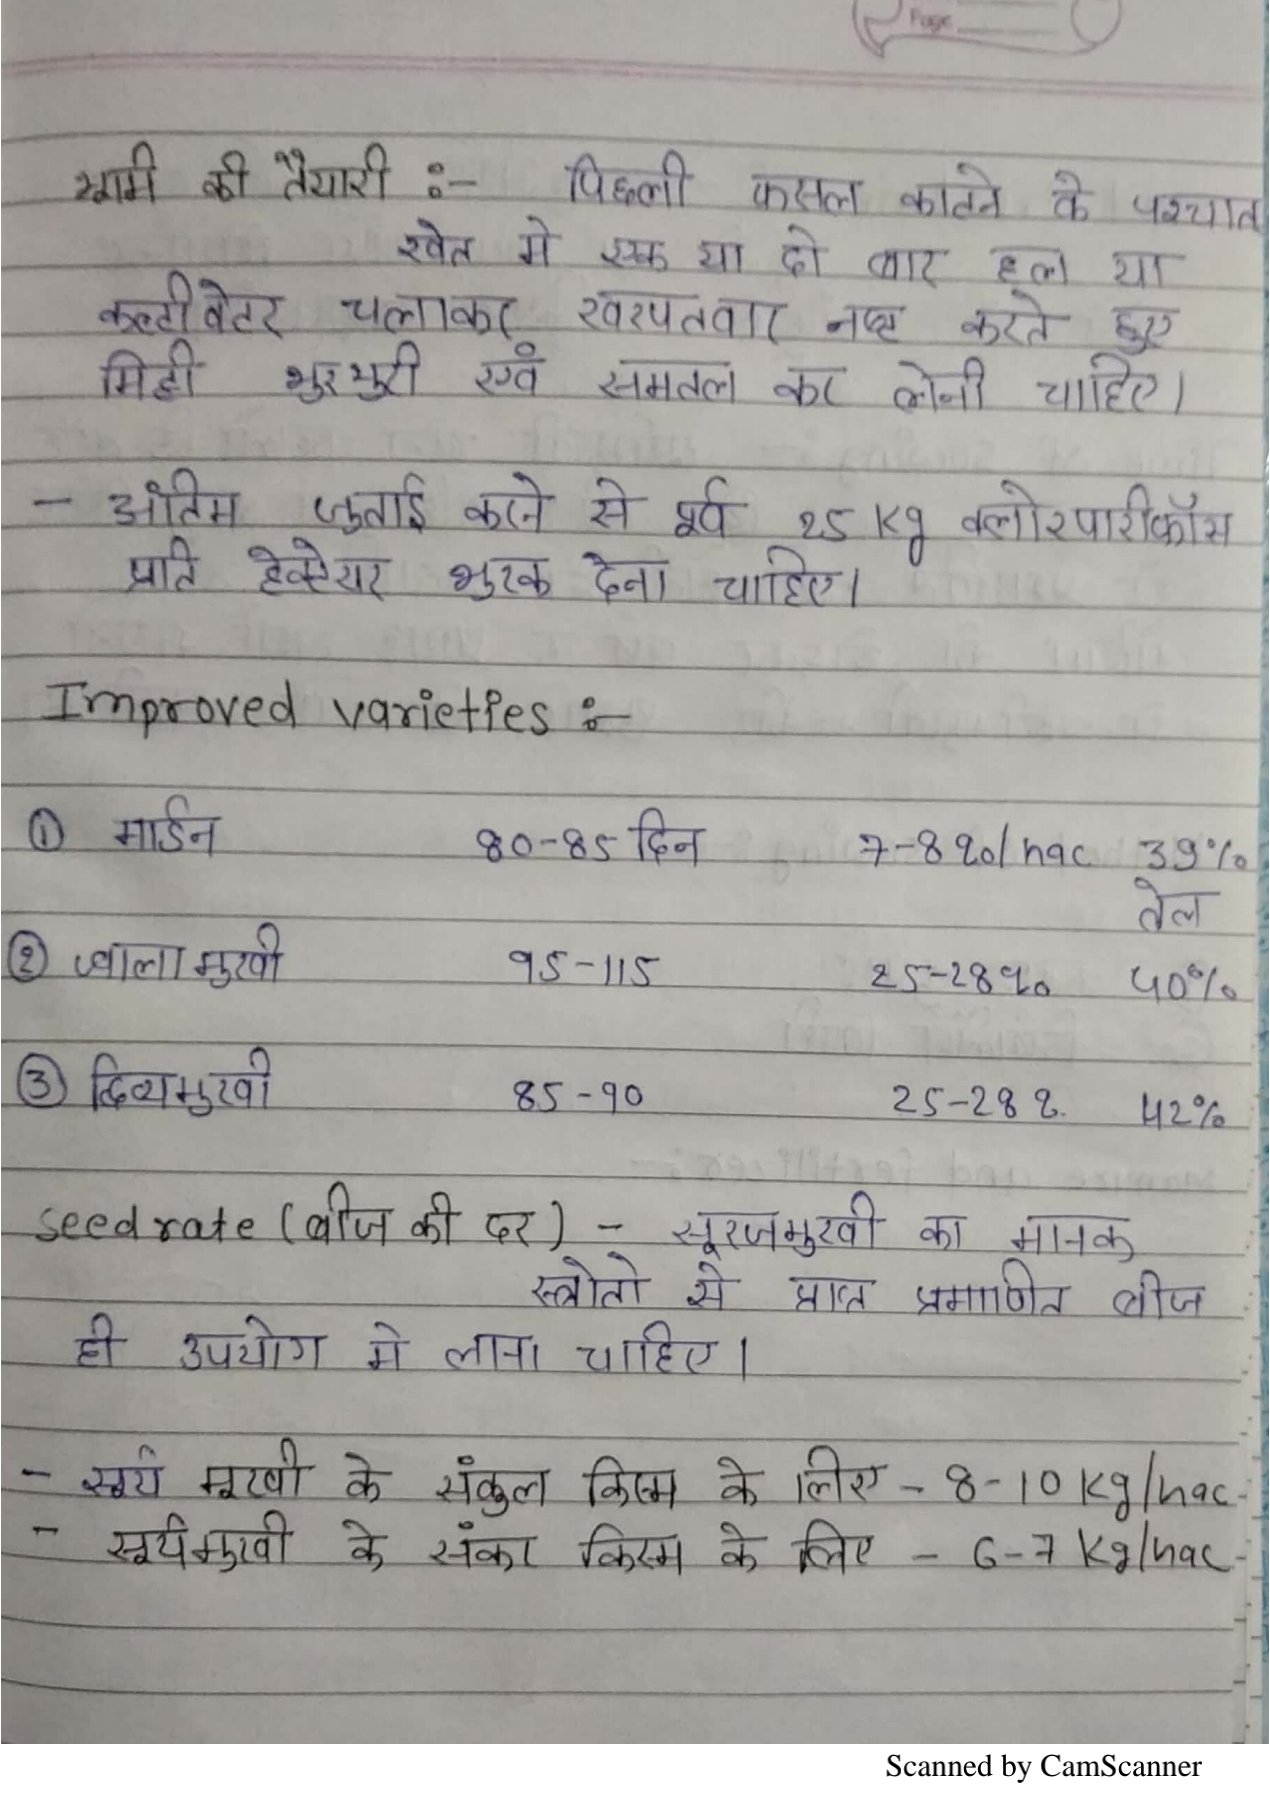 Page
भूमि की तैयारी :- पिछली फसल काटने के पश्चात
खेत मे एक या दो बार हल या
कल्टीवेटर चलाकर खरपतवार नष्ट करते हुए
मिट्टी भुरभुरी एवं समतल कर लेनी चाहिए।
- अंतिम जुताई करने से पूर्व 25 Kg क्लोरपारीफॉस
प्रति हेक्टेयर भुरक देना चाहिए।
Improved varieties :-
① मार्डन 80-85 दिन 7-8 q०/hac 39%
तेल
② ज्वालामुखी 95-115 25-28 q० 40%
③ दिव्यमुखी 85-90 25-28 q. 42%
Seed rate (बीज की दर) - सूरजमुखी का मानक
स्त्रोतो से प्राप्त प्रमाणित बीज
ही उपयोग मे लाना चाहिए।
- सूर्य मूखी के संकुल किस्म के लिए - 8-10 Kg/hac-
- सूर्यमुखी के संकर किस्म के लिए - 6-7 Kg/hac-
Scanned by CamScanner